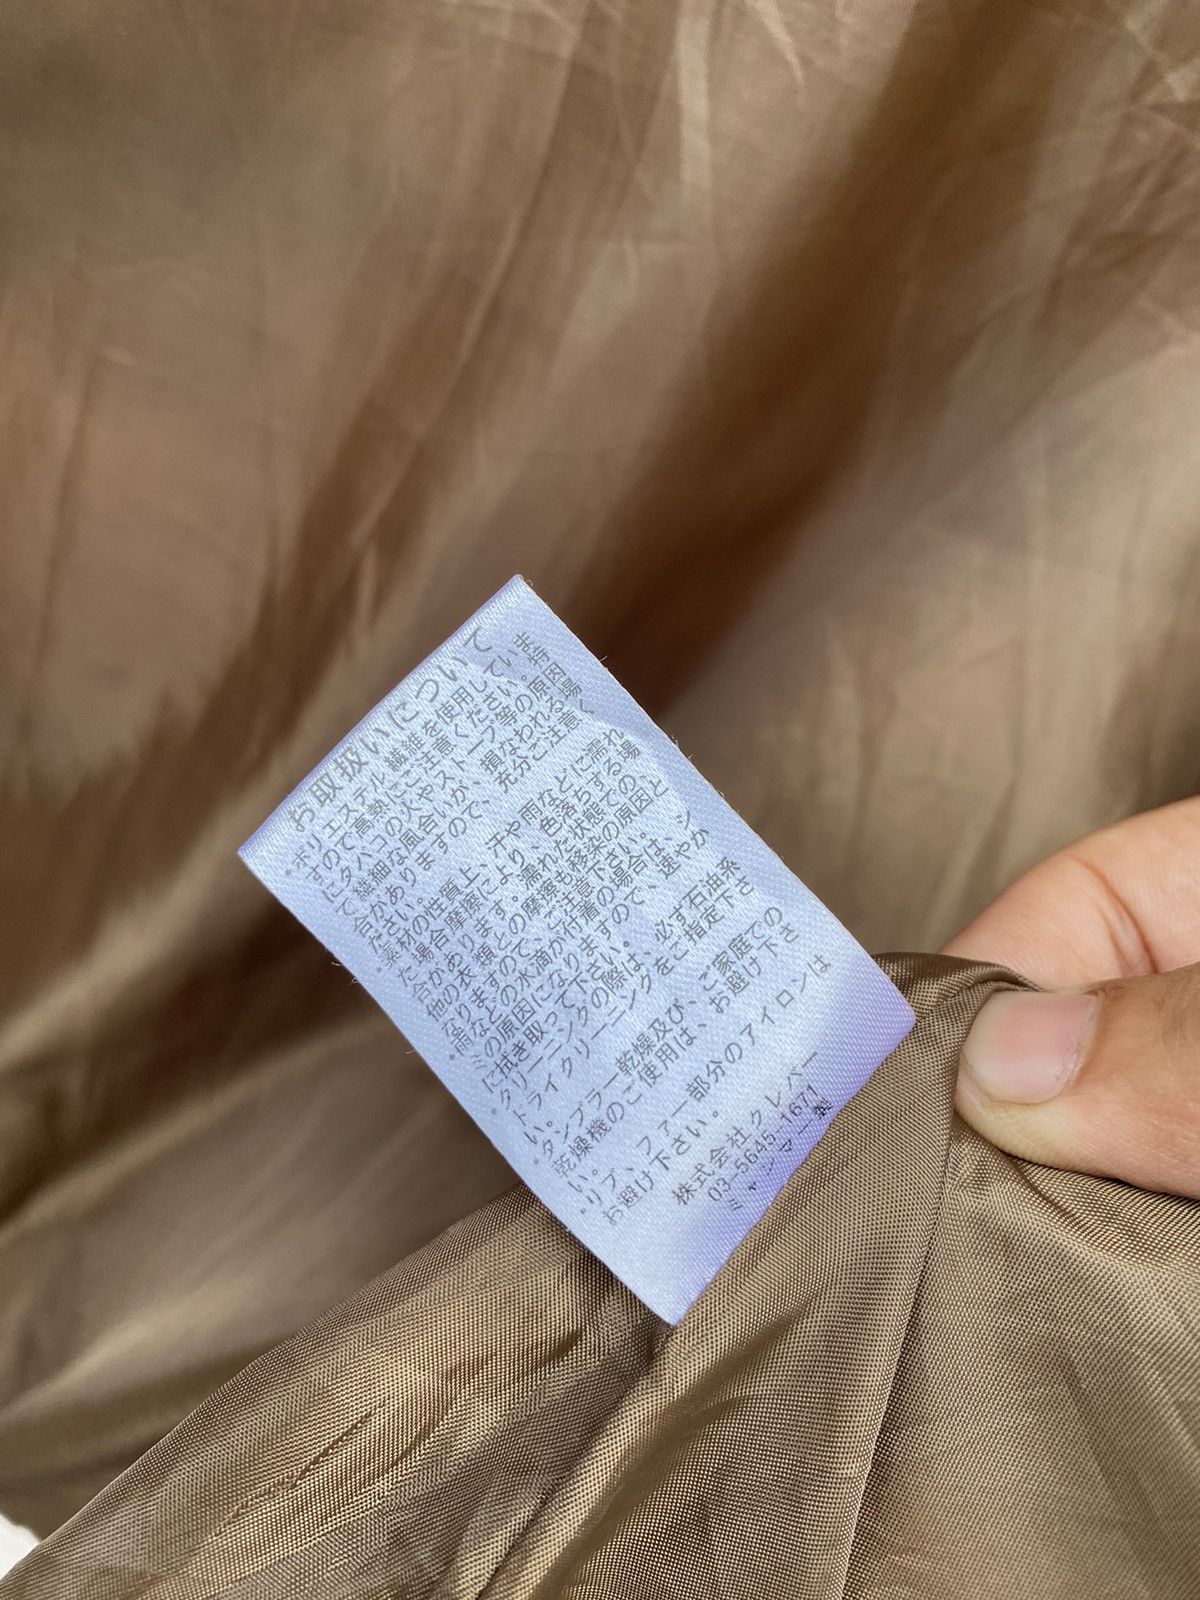 お取扱いについて
・ポリエステル繊維を使用してい
すので高熱にご注意ください。特
にタバコの火やストーブ等の原因
で繊細な風合いが、損なわれる場
合がありますので、充分ご注意く
ださい。
・素材の性質上、汗や雨などに濡れ
た場合や摩擦により、色落ちする場
合があります。濡れた状態での、
他の衣類との摩擦も移染の原因と
なりますので、ご注意下さい。
・雨などの水滴が付着の場合は、シ
ミの原因になりますので、速やか
に拭き取って下さい。
・クリーニングの際は、必ず石油系
ドライクリーニングをご指定下さ
い。
・タンブラー乾燥及び、ご家庭での
乾燥機のご使用は、お避け下さ
い。
・リブ、ファー部分のアイロンは
お避け下さい。
株式会社クレバー
03-5645-1671
ミャンマー製